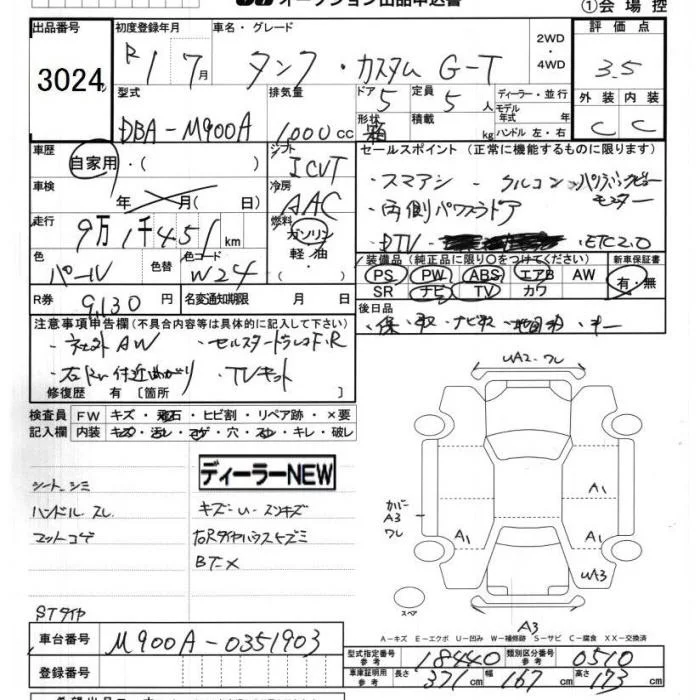 オークション出品申込書
①会場控
出品番号 初度登録年月 車名・グレード 2WD・4WD 評価点
3024 R 1 7月 タンク・カスタム G-T 3.5
型式 排気量 ドア 5 定員 5人 ディーラー・並行 外装 内装
DBA-M900A 1,000cc 形状 箱 積載 kg モデル年式 年式 ハンドル 左・右 C C
車歴 自家用・( ) シフト ICVT セールスポイント (正常に機能するものに限ります)
車検 年 月( 日) 冷房 AAC
・スマアシ -クルコン
走行 9万1千451km 燃料 ガソリン 軽油
・両側パワスラドア
・DTV ・ETC2.0
色 パール 色替 色コード W24
装備品 (純正品に限り○をつけてください) 新車保証書
PS PW ABS エアB AW 有・無
SR ナビ TV カワ
R券 9,130円 名変通知期限 月 日 後日品
注意事項申告欄(不具合内容等は具体的に記入して下さい)
・社外AW ・セルスタードラレコF.R
・TVキット
修復歴 有 [箇所 ]
UA2・ワレ
検査員 FW キズ・飛石・ヒビ割・リペア跡・×要
記入欄 内装 キズ・汚レ・コゲ・穴・スレ・キレ・破レ
ディーラーNEW
シートシミ
ハンドルスレ キズ-U-スリキズ
マットコゲ 右Rタイヤハウスケズミ
BT-X
カバー A3 ワレ
A1
A1 A1
UA3
スペア
A3
STタイヤ
A-キズ E-エクボ U-凹み W-補修跡 S-サビ C-腐食 XX-交換済
車台番号 M900A-0351903
型式指定番号 参考 18440 類別区分番号 参考 0510
登録番号
車庫証明用 参考 長さ 371cm 幅 167cm 高さ 173cm